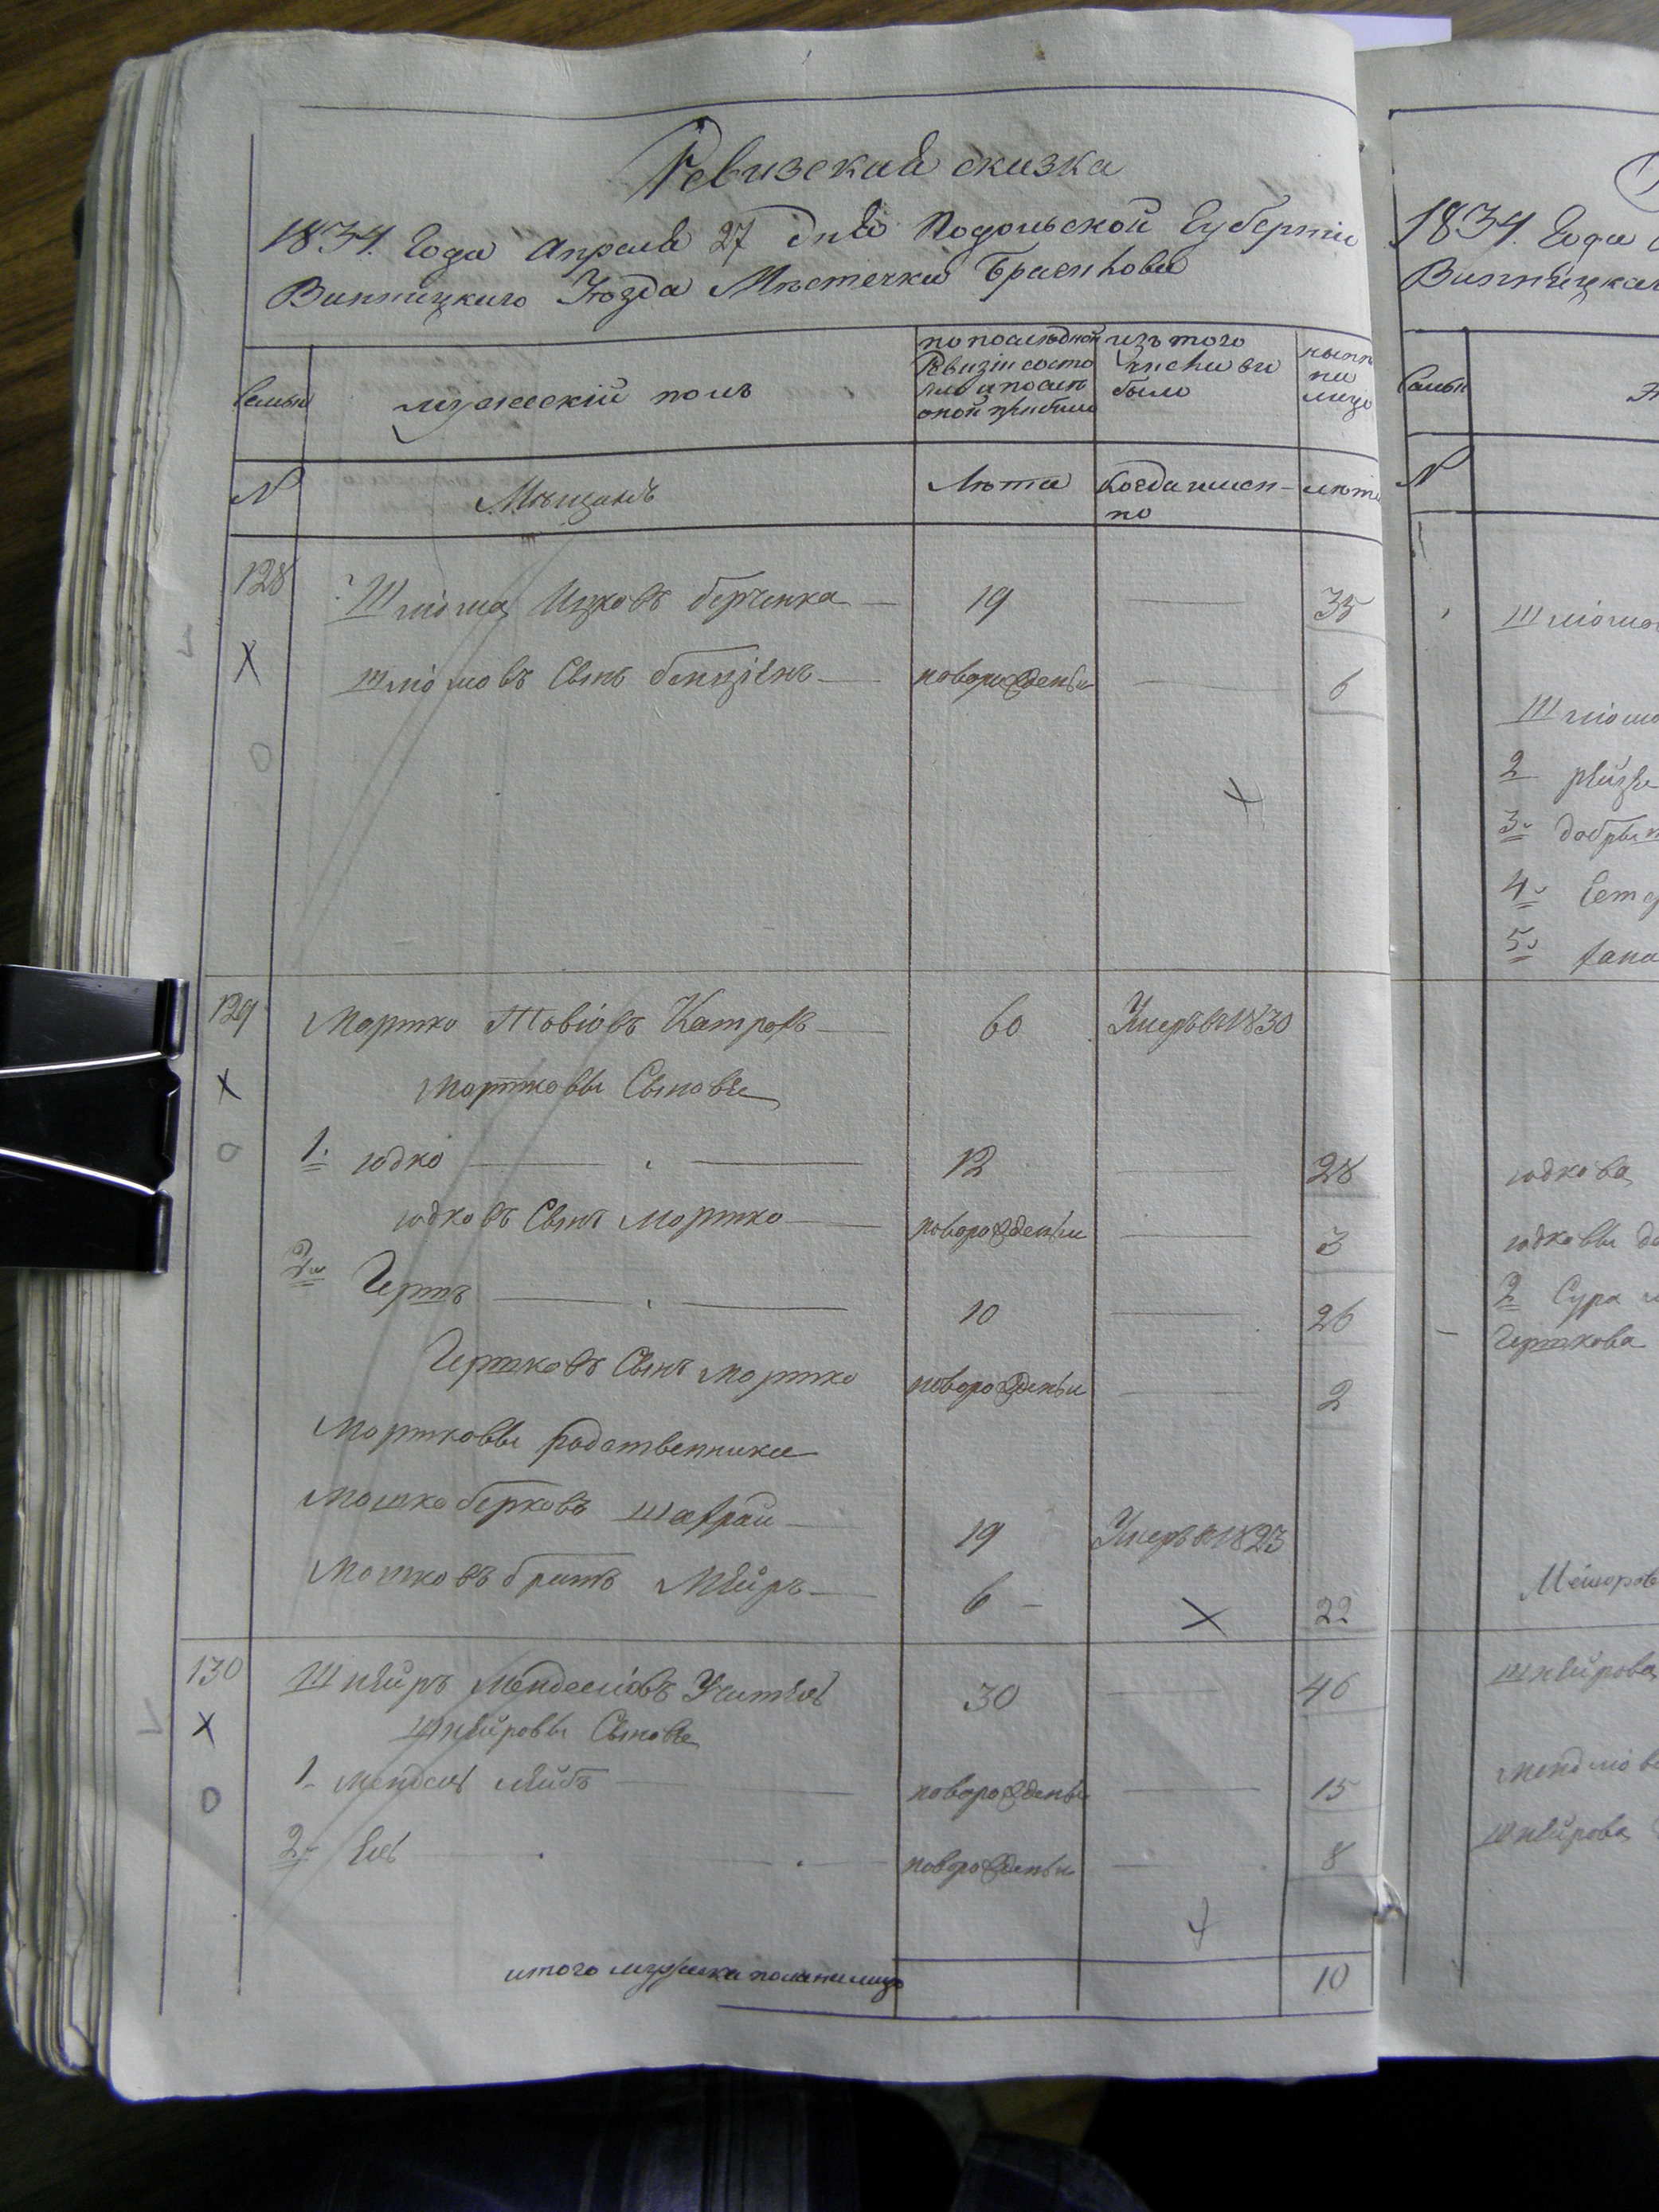 Ревизская сказка
1834. Года Апреля 27 дня Подольской Губернiи
Винницкаго Уѣзда Мѣстечка Браилова
Семьи
мужескiй полъ
по последной
Ревизiи состо
яло и после
оной прибыло
изъ того
Числа вы
было
нынѣ
на
лицо
N
Мѣщанъ
Лѣта
Когда имен-
но
лѣта
128 Шлiома Ицковъ берченка 19 35
X Шлiомовъ Сынъ бенцiенъ новорожденъ 6
129 Мортко Товiовъ 60 Умеръ в 1830
X Мортковы Сыновья
1. юдко 12 28
юдковъ Сынъ Мортко новорожденъ 3
2. Герш 10 26
Гершковъ Сынъ Мортко новорожденъ 2
Мортковы родственники
Мошко берковъ 19 Умеръ в 1823
Мошковъ братъ Мейръ 6 X 22
130 Шнейръ Менделiовъ Учитель 30 46
X Шнейровы Сыновья
1. Мендель лейбъ новорожденъ 15
2. новорожденъ 8
итого мужеска пола на лицо 10
1834. Года
Винницкаго
Семьи
N
Шлiомова
Шлiомо
2 рейзя
3.
4.
5.
юдкова
юдковы до
2 Сура
Гершкова
Шнейрова
Шнейрова